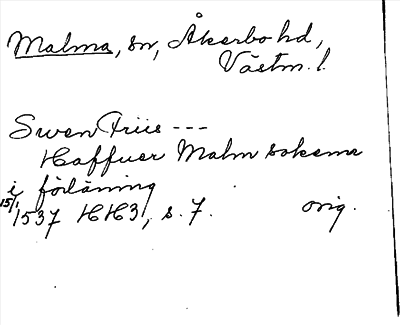 Malma, sn, Åkerbo hd,
Västm. l.
Swen Friis ---
Haffuer Malm sokema
i förläning
15/1 1537 HH31, s. 7. orig.